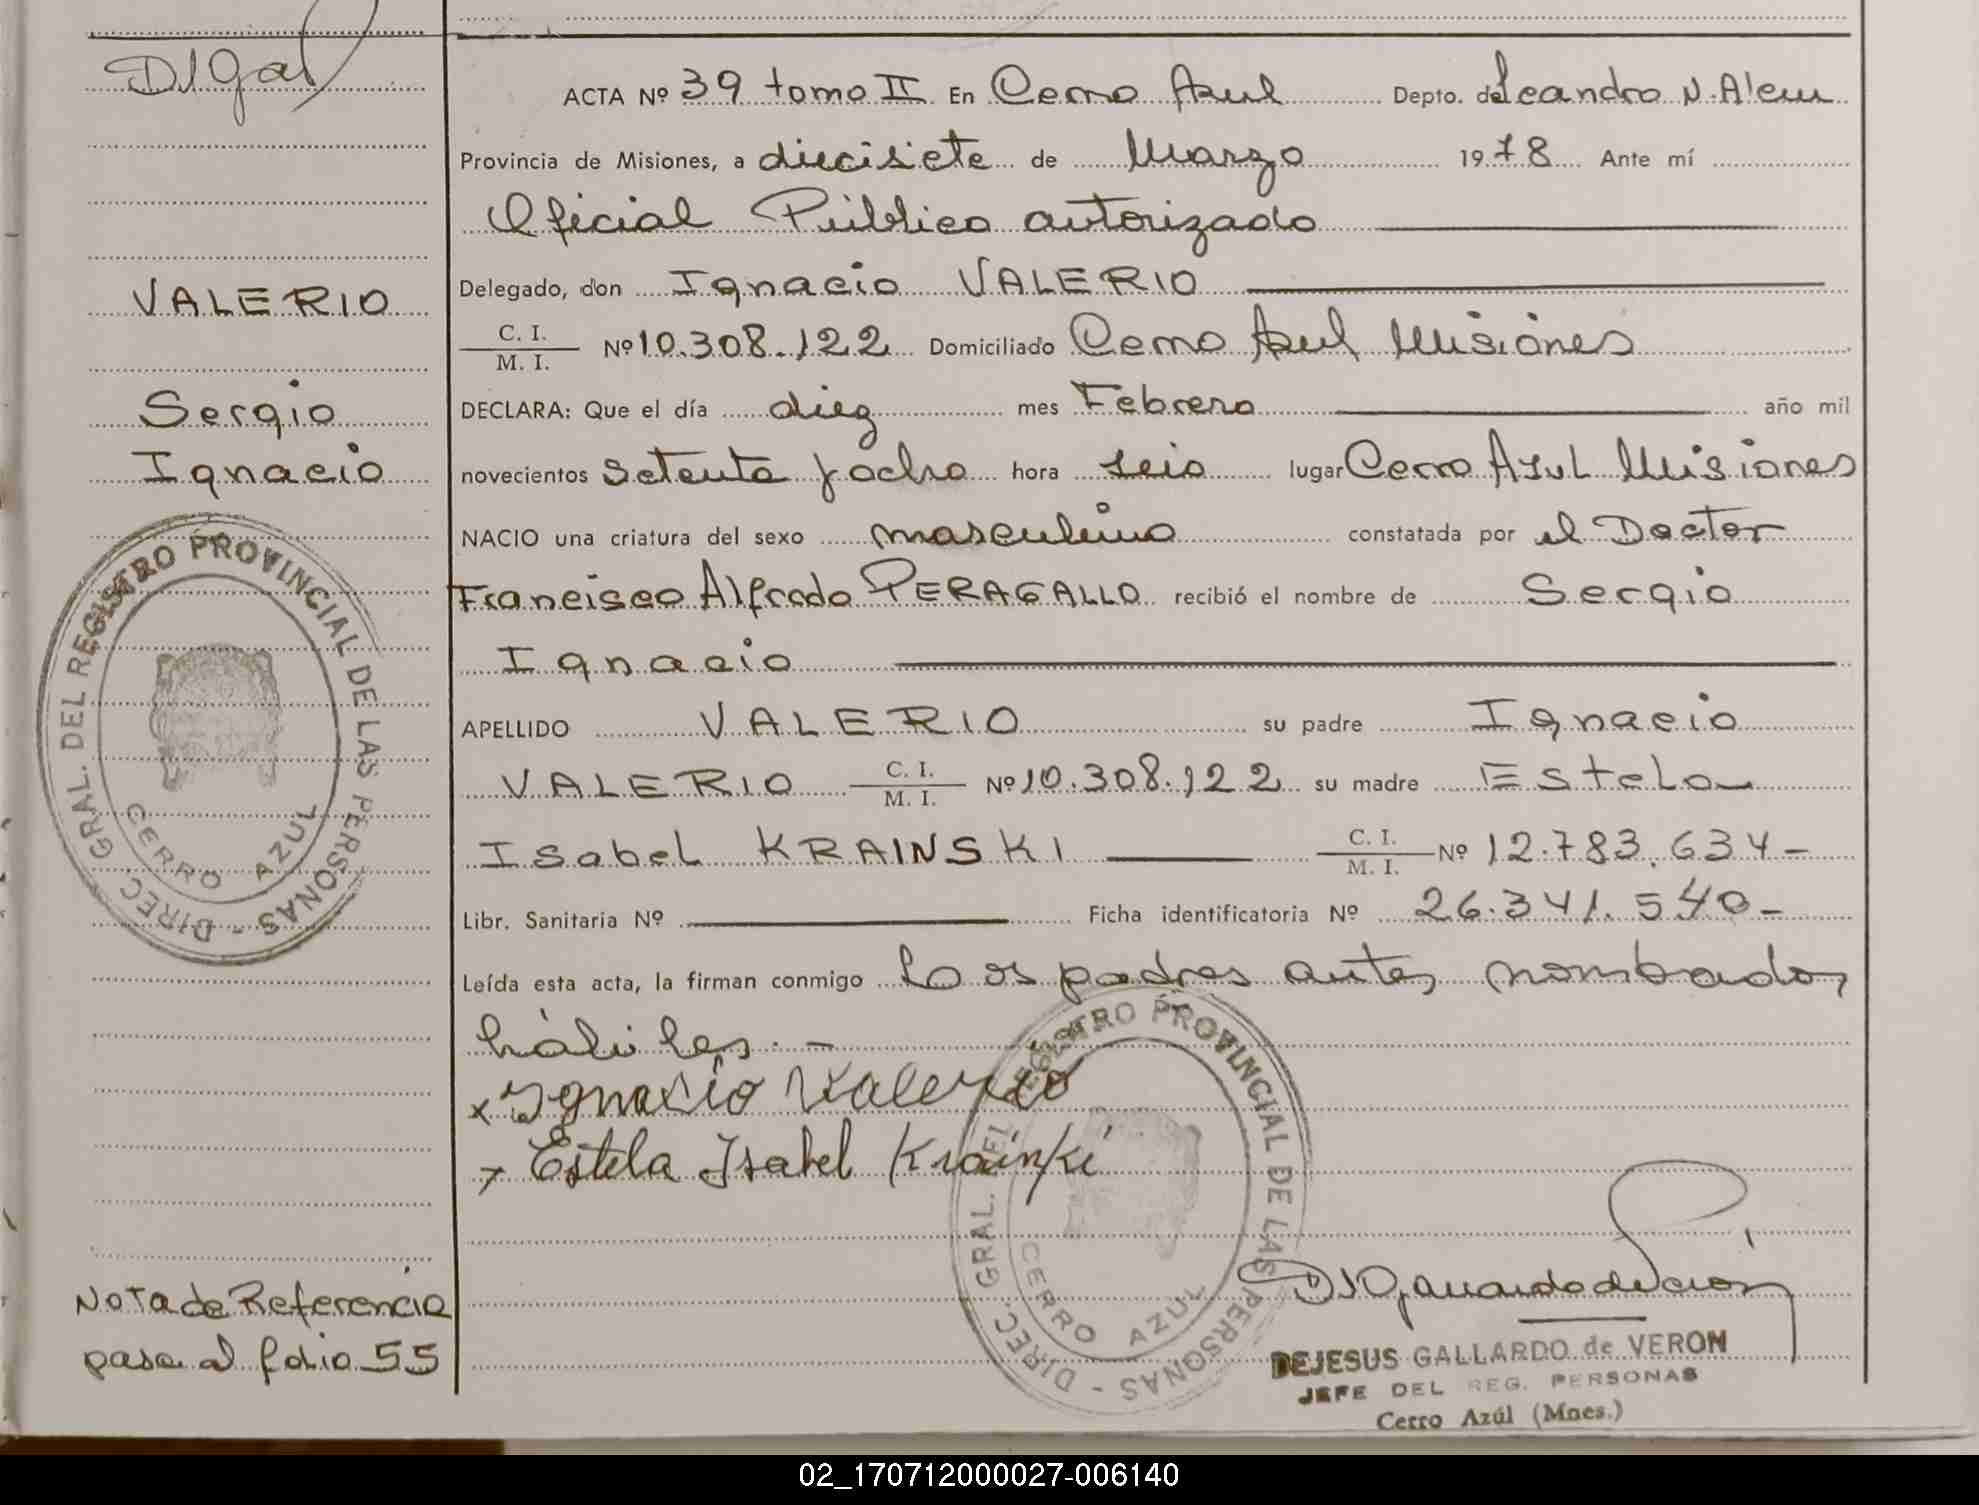 ACTA Nº 39 tomo II En Cerro Azul Depto. de Leandro N. Alem
Provincia de Misiones, a diecisiete de Marzo 1978 Ante mí
Oficial Público autorizado
Delegado, don Ignacio VALERIO
C. I.
M. I. Nº 10.308.122 Domiciliado Cerro Azul Misiones
DECLARA: Que el día diez mes Febrero año mil
novecientos setenta y ocho hora seis lugar Cerro Azul Misiones
NACIO una criatura del sexo masculino constatada por el Doctor
Francisco Alfredo PERAGALLO recibió el nombre de Sergio
Ignacio
APELLIDO VALERIO su padre Ignacio
VALERIO C. I. M. I. Nº 10.308.122 su madre Estela
Isabel KRAINSKI C. I. M. I. Nº 12.783.634-
Libr. Sanitaria Nº Ficha identificatoria Nº 26.341.540-
Leída esta acta, la firman conmigo los padres antes nombados
hábiles. -
x Ignacio Valerio
x Estela Isabel Krainki
DEJESUS GALLARDO de VERON
JEFE DEL REG. PERSONAS
Cerro Azúl (Mnes.)
VALERIO
Sergio
Ignacio
DIREC. GRAL. DEL REGISTRO PROVINCIAL DE LAS PERSONAS -
CERRO AZUL
Nota de Referencia
pasa al folio 55
DIREC. GRAL. DEL REGISTRO PROVINCIAL DE LAS PERSONAS -
CERRO AZUL
02_170712000027-006140